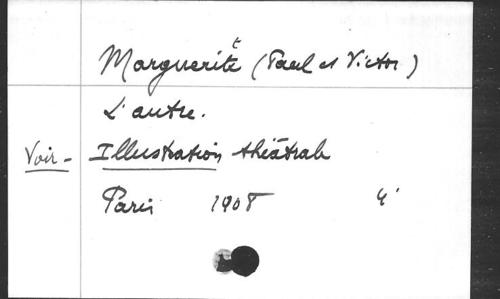 Margueritte (Paul et Victor)
L'autre.
Voir - Illustration théâtrale
Paris 1908 4°